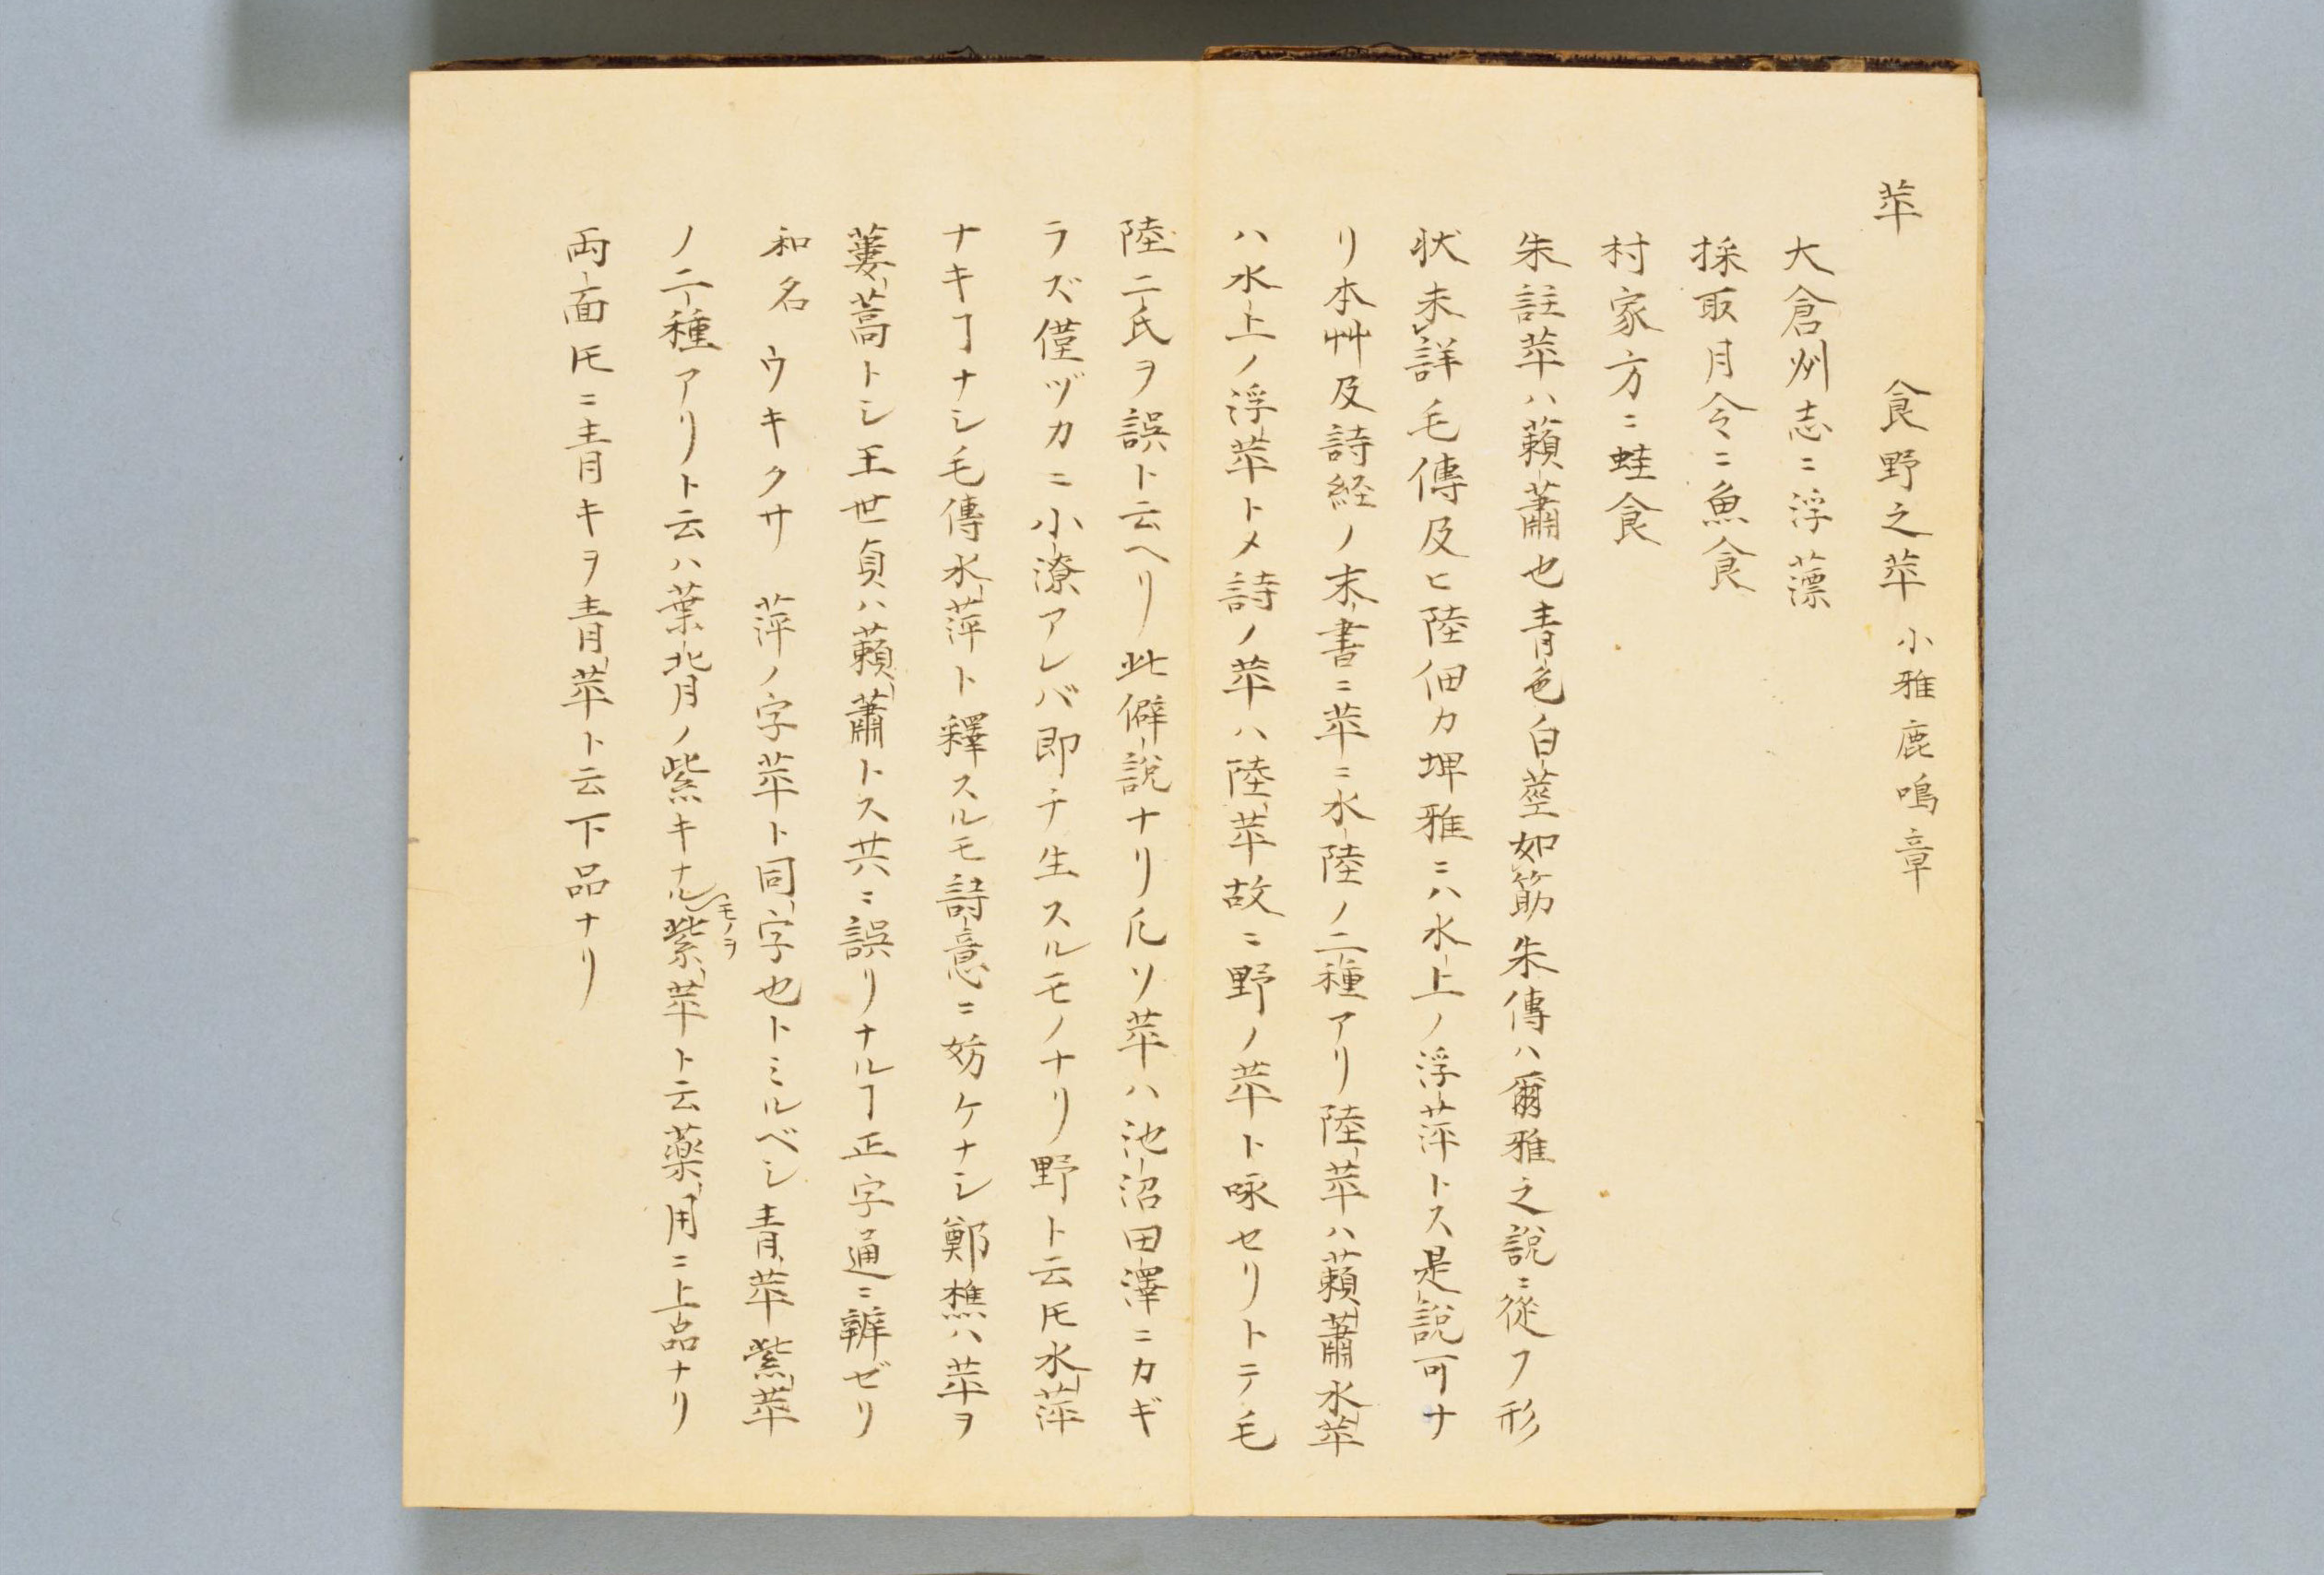 苹　食野之苹　小雅鹿鳴章
大倉州志ニ浮薸
採取月令ニ魚食
村家方ニ蛙食
朱註苹ハ藾蕭也青色白莖如筯朱傳ハ爾雅之說ニ從フ形
状未詳毛傳及ヒ陸佃カ埤雅ニハ水上ノ浮萍トス是說可ナ
リ本艸及詩経ノ末書ニ苹ニ水陸ノ二種アリ陸苹ハ藾蕭水苹
ハ水上ノ浮苹トメ詩ノ苹ハ陸苹故ニ野ノ苹ト咏セリトテ毛
陸二氏ヲ誤ト云ヘリ此僻說ナリ凡ソ苹ハ池沼田澤ニカギ
ラズ僅ヅカニ小潦アレバ即チ生スルモノナリ野ト云𪜈水萍
ナキヿナシ毛傳水萍ト釋スルモ詩意ニ妨ケナシ鄭樵ハ苹ヲ
蔞蒿トシ王世貞ハ藾蕭トス共ニ誤リナルヿ正字通ニ辨ゼリ
和名　ウキクサ　萍ノ字苹ト同字也トミルベシ青苹紫苹
ノ二種アリト云ハ葉背ノ紫キナルモノヲ紫苹ト云薬用ニ上品ナリ
両面𪜈ニ青キヲ青苹ト云下品ナリ